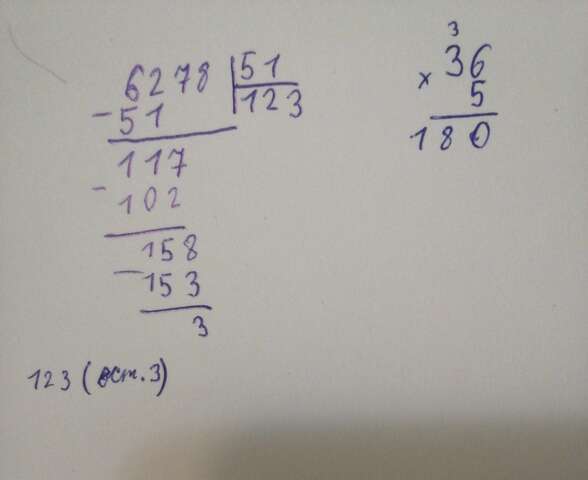 6278 51
- 51 123
117
- 102
158
- 153
3
123 (ост. 3)
3
36
x 5
180